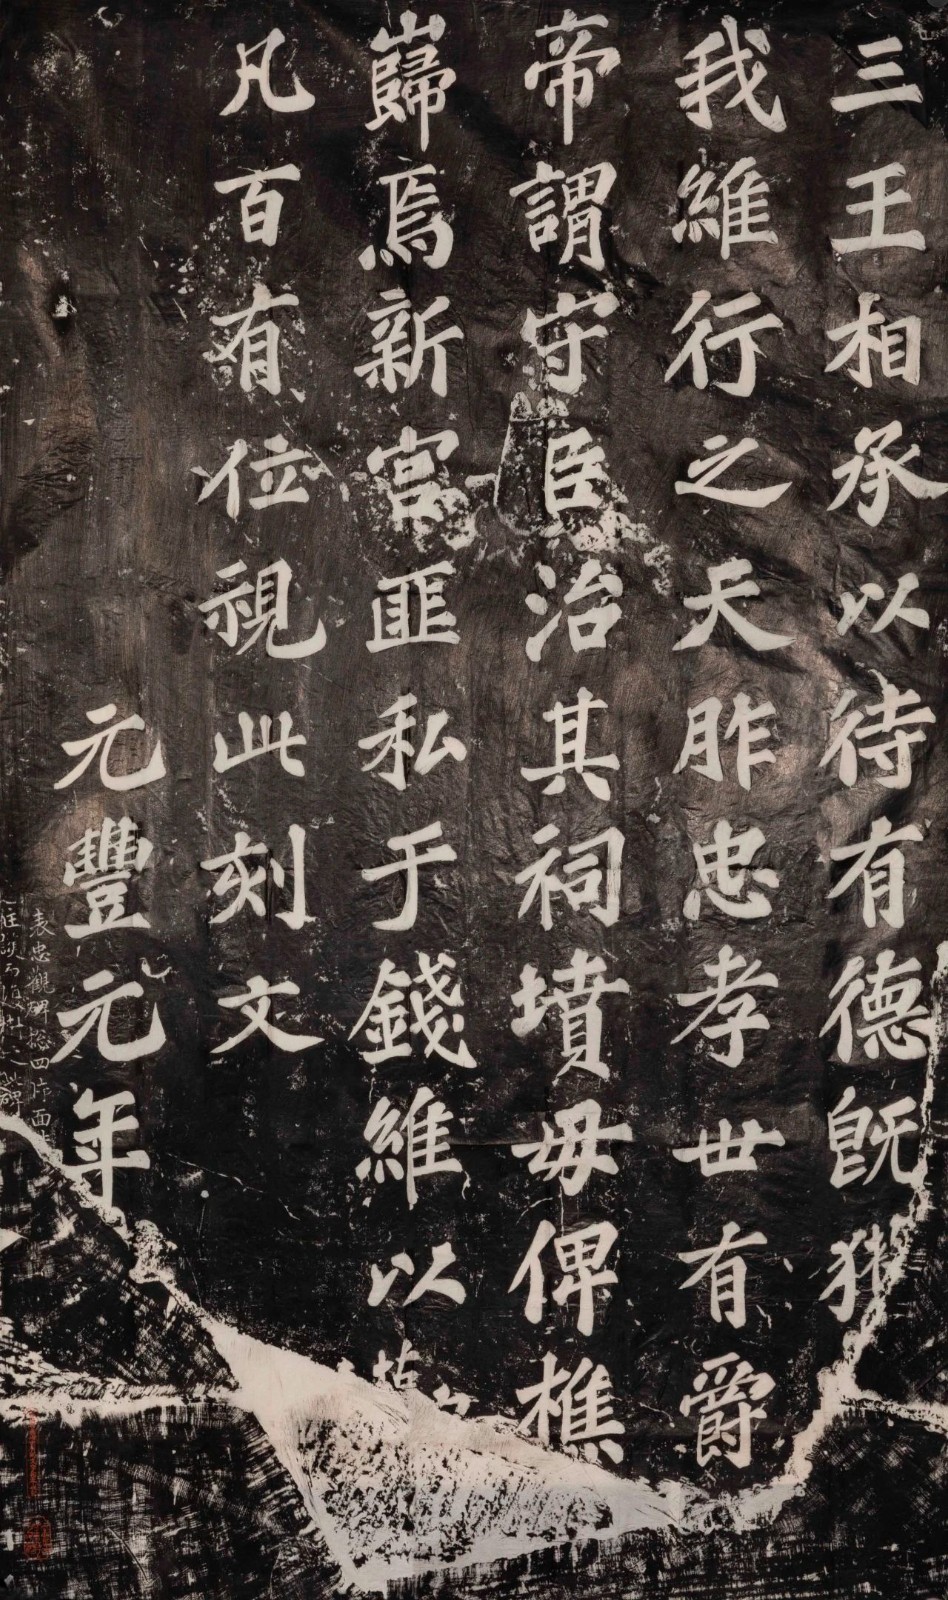 三王相承以待有德既獲
我維行之天胙忠孝世有爵
帝謂守臣治其祠墳毋俾樵
巋焉新宮匪私于錢維以
凡百有位視此刻文
元豐元年
表忠觀碑